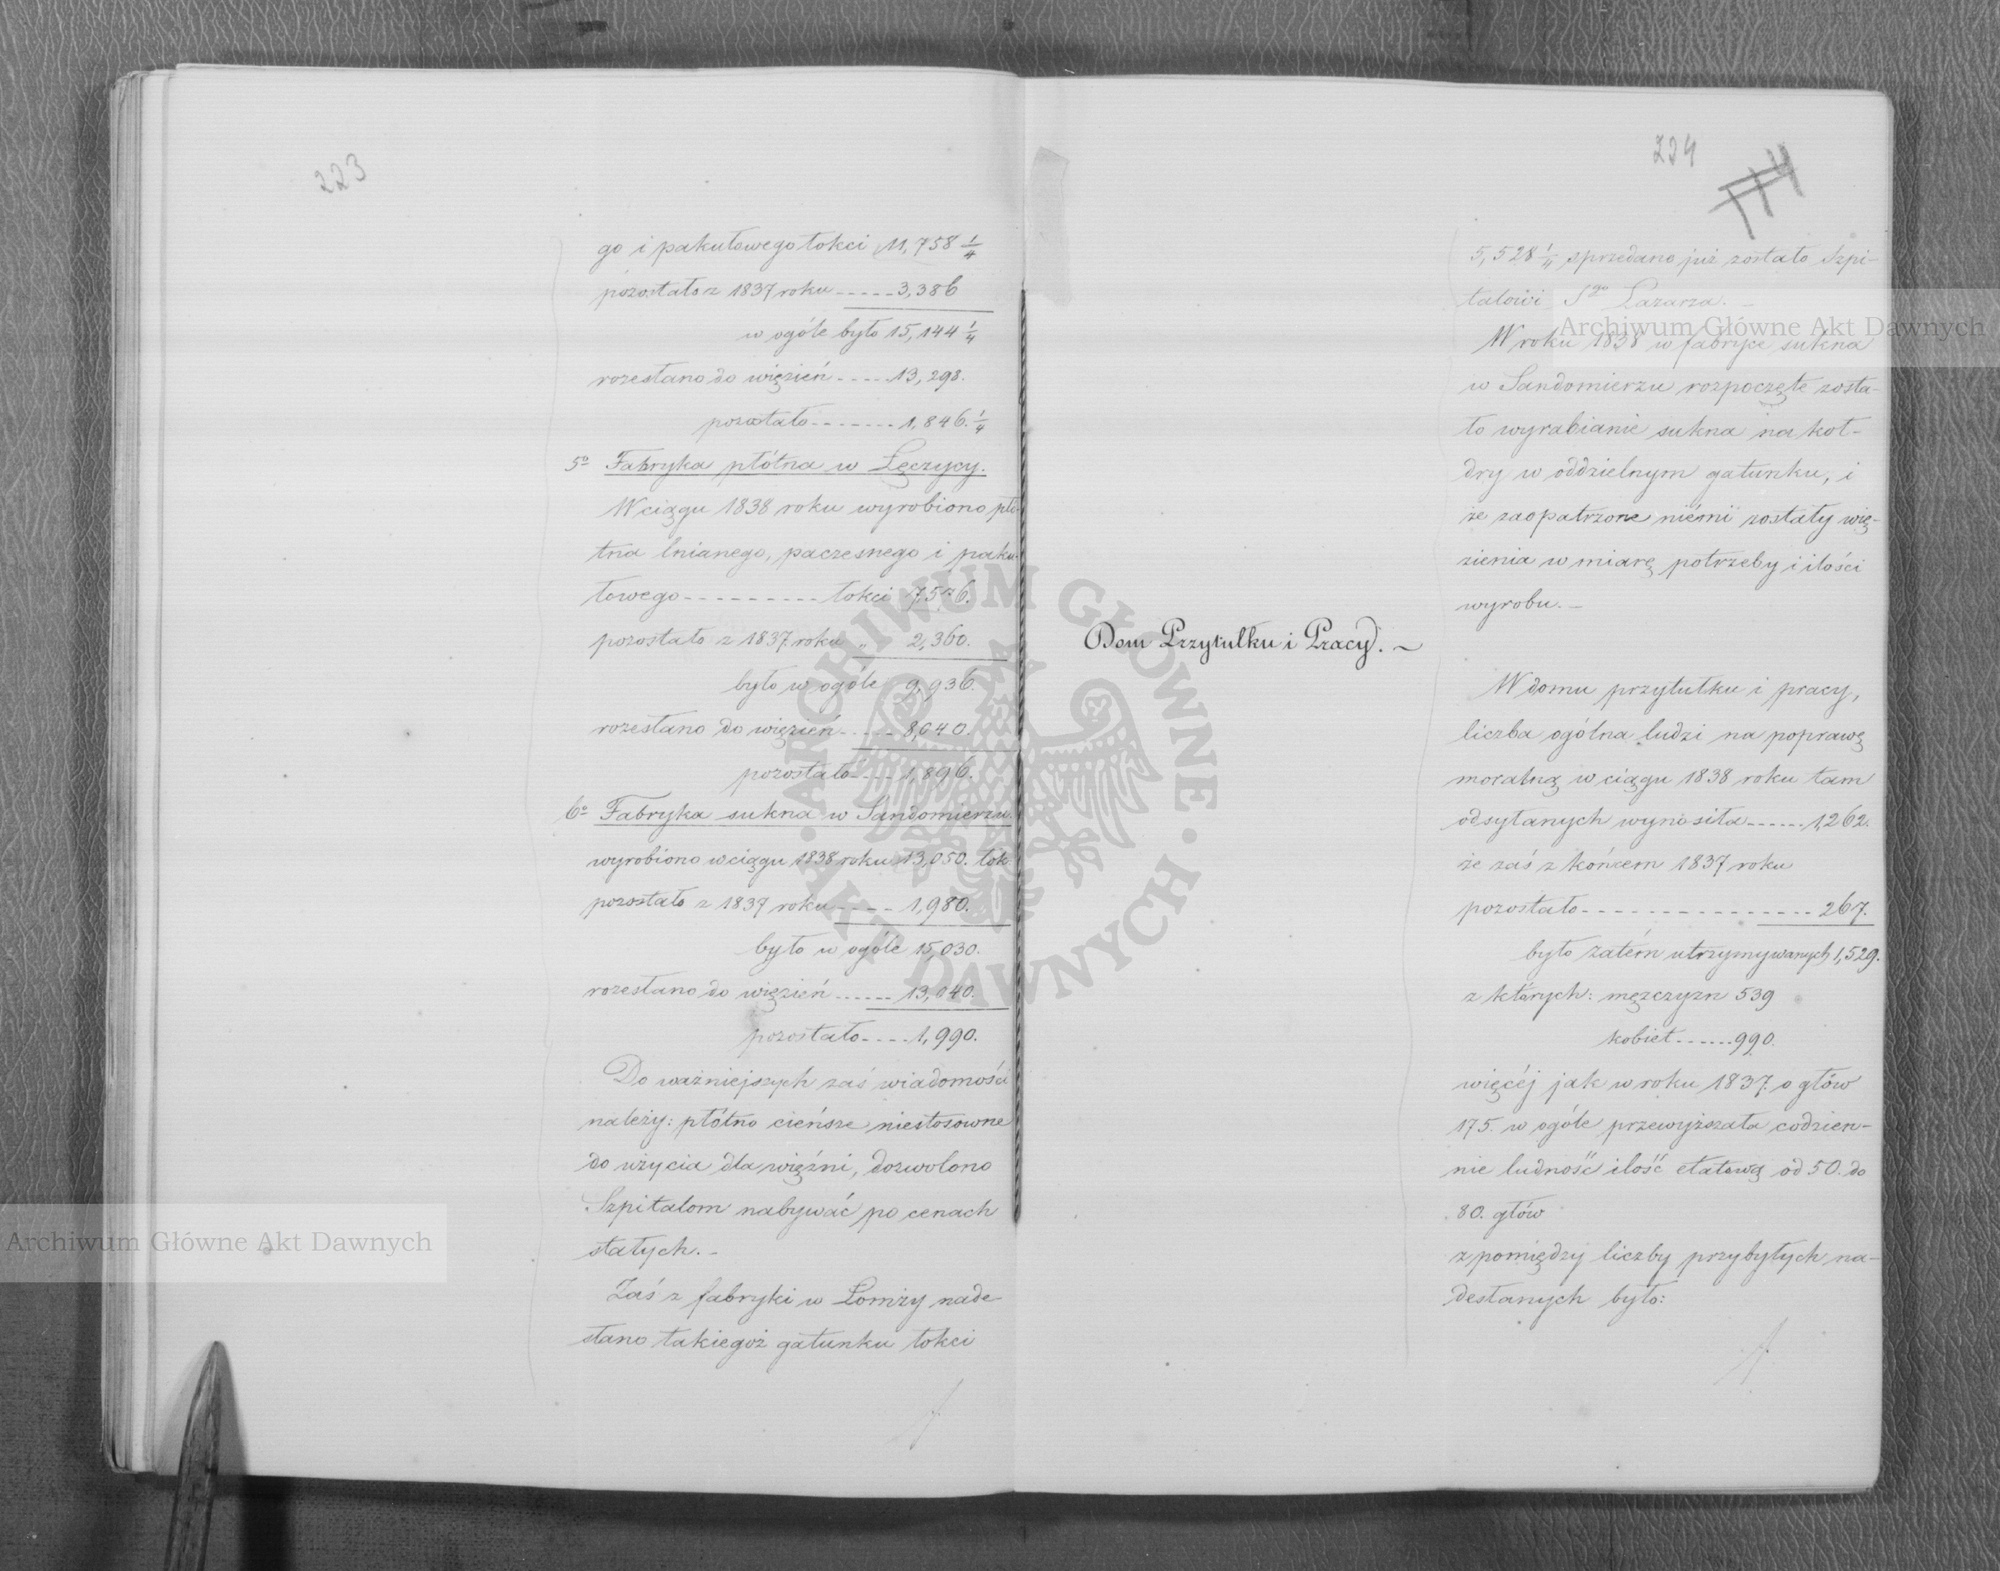 223
go i pakułowego łokci 11,758 1/4
pozostało z 1837 roku ----- 3,386
w ogóle było 15,144 1/4
rozesłano do więzień ----- 13,298.
pozostało ------- 1,846. 1/4
5o Fabryka płótna w Łęczycy.
W ciągu 1838 roku wyrobiono płó-
tna lnianego, paczesnego i paku-
łowego --------- łokci 7,576.
pozostało z 1837 roku „ 2,360.
było w ogóle 9,936.
rozesłano do więzień ----- 8,040.
pozostało ---- 1,896.
6o Fabryka sukna w Sandomierzu.
wyrobiono w ciągu 1838 roku 13,050. łok
pozostało z 1837 roku ----- 1,980.
było w ogóle 15,030.
rozesłano do więzień ------ 13,040.
pozostało ---- 1,990.
Do ważniejszych zaś wiadomości
należy: płótno cieńsze niestosowne
do użycia dla więźni, dozwolono
Szpitalom nabywać po cenach
stałych. -
Zaś z fabryki w Łomży nade-
słano takiegoż gatunku łokci
224
5,528 1/4 sprzedano już zostało Szpi-
talowi Sgo Łazarza. -
W roku 1838 w fabryce sukna
w Sandomierzu rozpoczęte zosta-
ło wyrabianie sukna na koł-
dry w oddzielnym gatunku, i
że zaopatrzone niémi zostały wię-
zienia w miarę potrzeby i ilości
wyrobu. -
Dom Przytułku i Pracy. ~
W domu przytułku i pracy,
liczba ogólna ludzi na poprawę
moralną w ciągu 1838 roku tam
odsyłanych wynosiła ------ 1,262.
że zaś z końcem 1837 roku
pozostało ---------------- 267.
było zatém utrzymywanych 1,529.
z których: mężczyzn 539
kobiet ------ 990.
więcéj jak w roku 1837 o głów
175. w ogóle przewyższała codzien-
nie ludność ilość etatową od 50. do
80. głów
z pomiędzy liczby przybyłych na-
desłanych było:
ARCHIWUM GŁÓWNE · AKT DAWNYCH ·
Archiwum Główne Akt Dawnych
Archiwum Główne Akt Dawnych